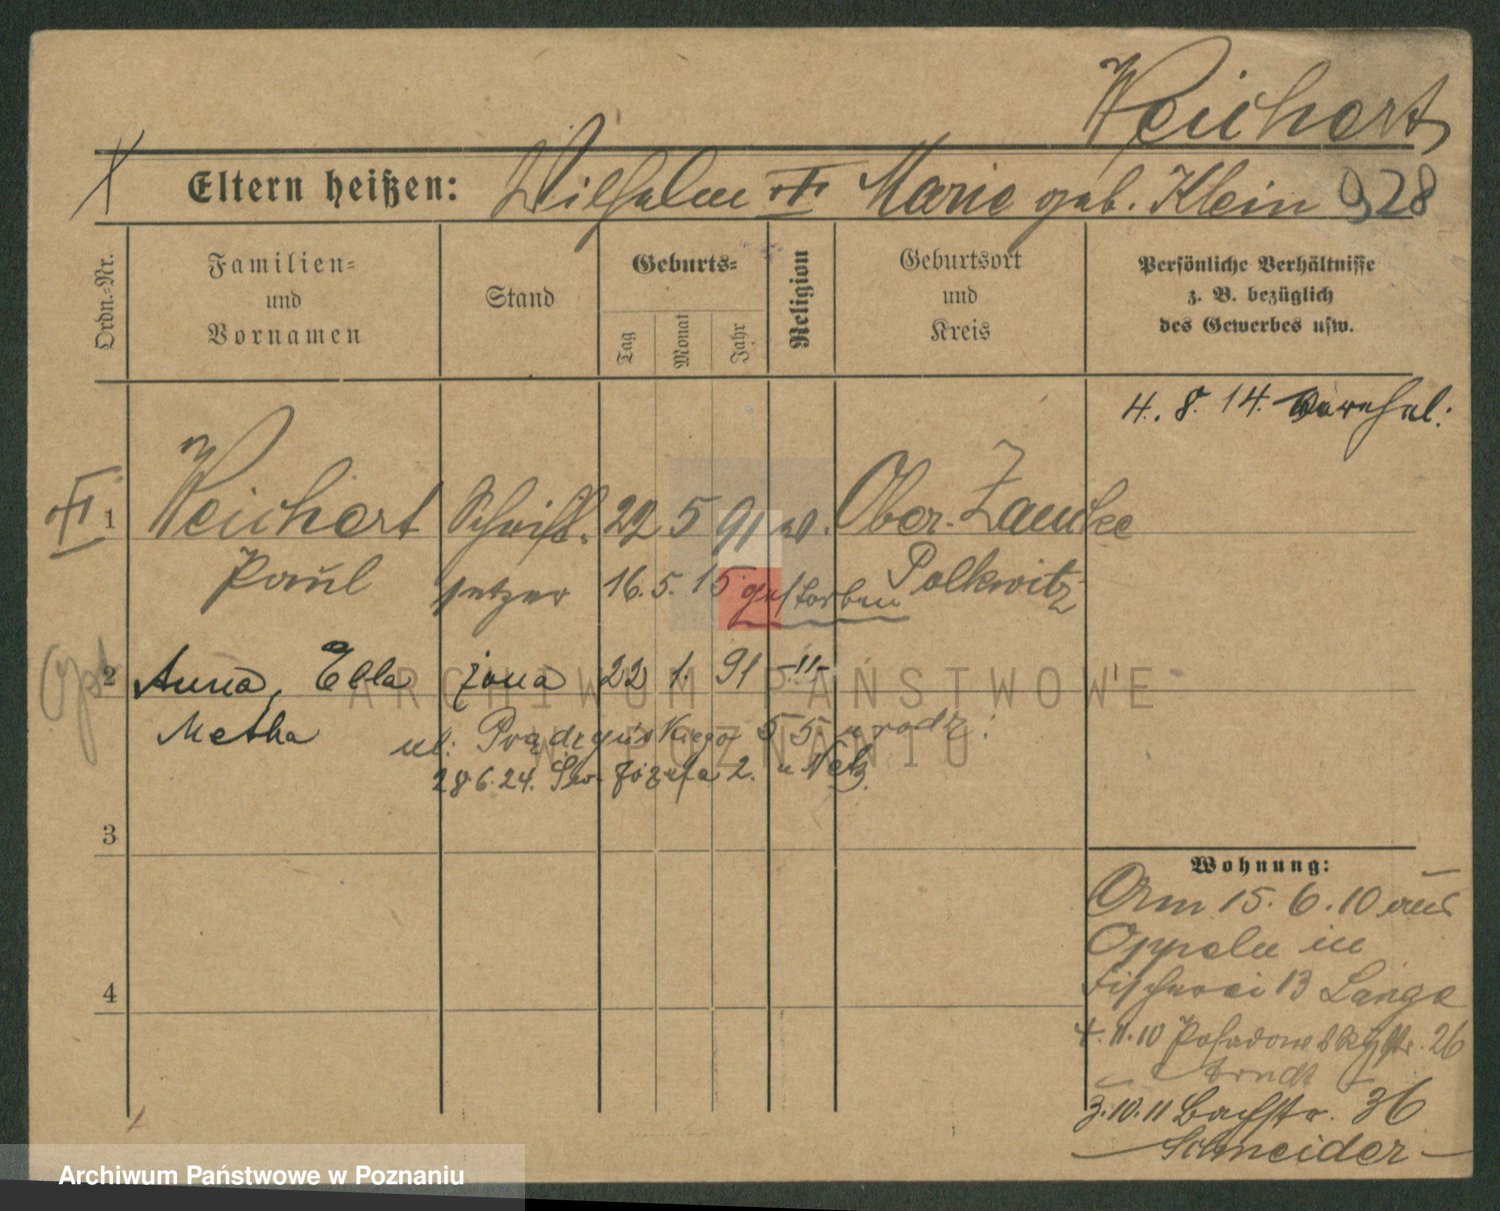 Weichert
Eltern heißen: Wilhelm Marie geb. Klein 928
Ordn.-Nr.
Familien-
und
Vornamen
Stand
Geburts-
Tag
Monat
Jahr
Religion
Geburtsort
und
Kreis
Persönliche Verhältnisse
z. B. bezüglich
des Gewerbes usw.
4. 8. 14.
1 Weichert Schrift- 22 5 91 Ober-Zauche
Paul setzer 16. 5. 15 gestorben Polkwitz
2 Anna, Ella żona 22 1. 91 -"-
Metha ul: Prądzyńskiego 55 u rodz:
28.6.24. Św. Józefa 2. u
3
4
Wohnung:
Am 15. 6. 10 aus
Oppeln in
Fischerei 13 Lange
4. 11. 10 Posadowskystr. 26
Arndt
3. 10. 11 Bachstr. 36
Schneider
ARCHIWUM PAŃSTWOWE
W POZNANIU
Archiwum Państwowe w Poznaniu